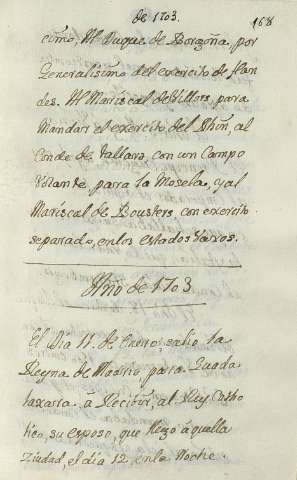 de 1703.
168
cimo, Al Duque de Borgoña, por
Generalisimo del exercito de flan
des. Al Mariscal de Villars, para
Mandar el exercito del Rhin, al
Conde de Tallard, con un Campo
Volante, para la Mosela, y al
Mariscal de Boufters, con exercito
separado, en los estados Varios.
Año de 1703
El Dia 11. de Enero, salio la
Reyna de Madrid, para Guada
laxara â Recivir, al Rey Catho
lico, su esposo, que llegó â quella
Ciudad, el dia 12. en la Noche.